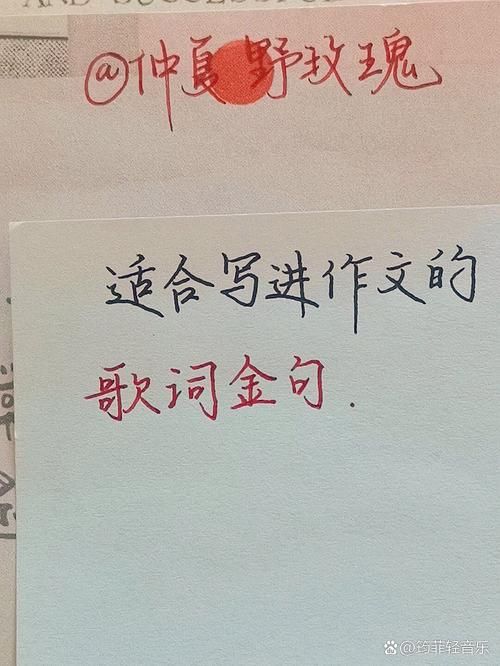 AND SUCCESSFUL
@仲夏野玫瑰
适合写进作文的
歌词金句.
@筠菲轻音乐